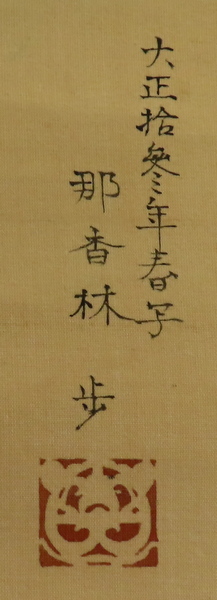 大正拾參年春写
那香林 步